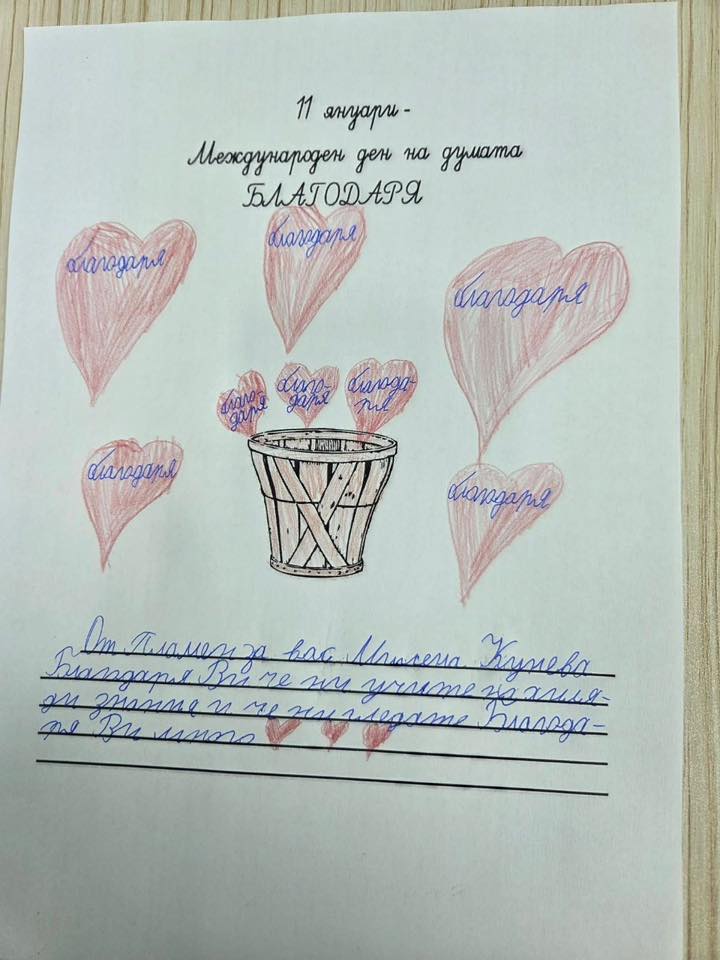 11 януари -
Международен ден на думата
БЛАГОДАРЯ
благодаря
благодаря
благодаря
благо-
даря
благо-
даря
благода-
ря
благодаря
благодаря
От Пламен за вас Кунева
Благодаря Ви че ни учите на хиля-
ди знания и че ни гледате Благода-
ря Ви много